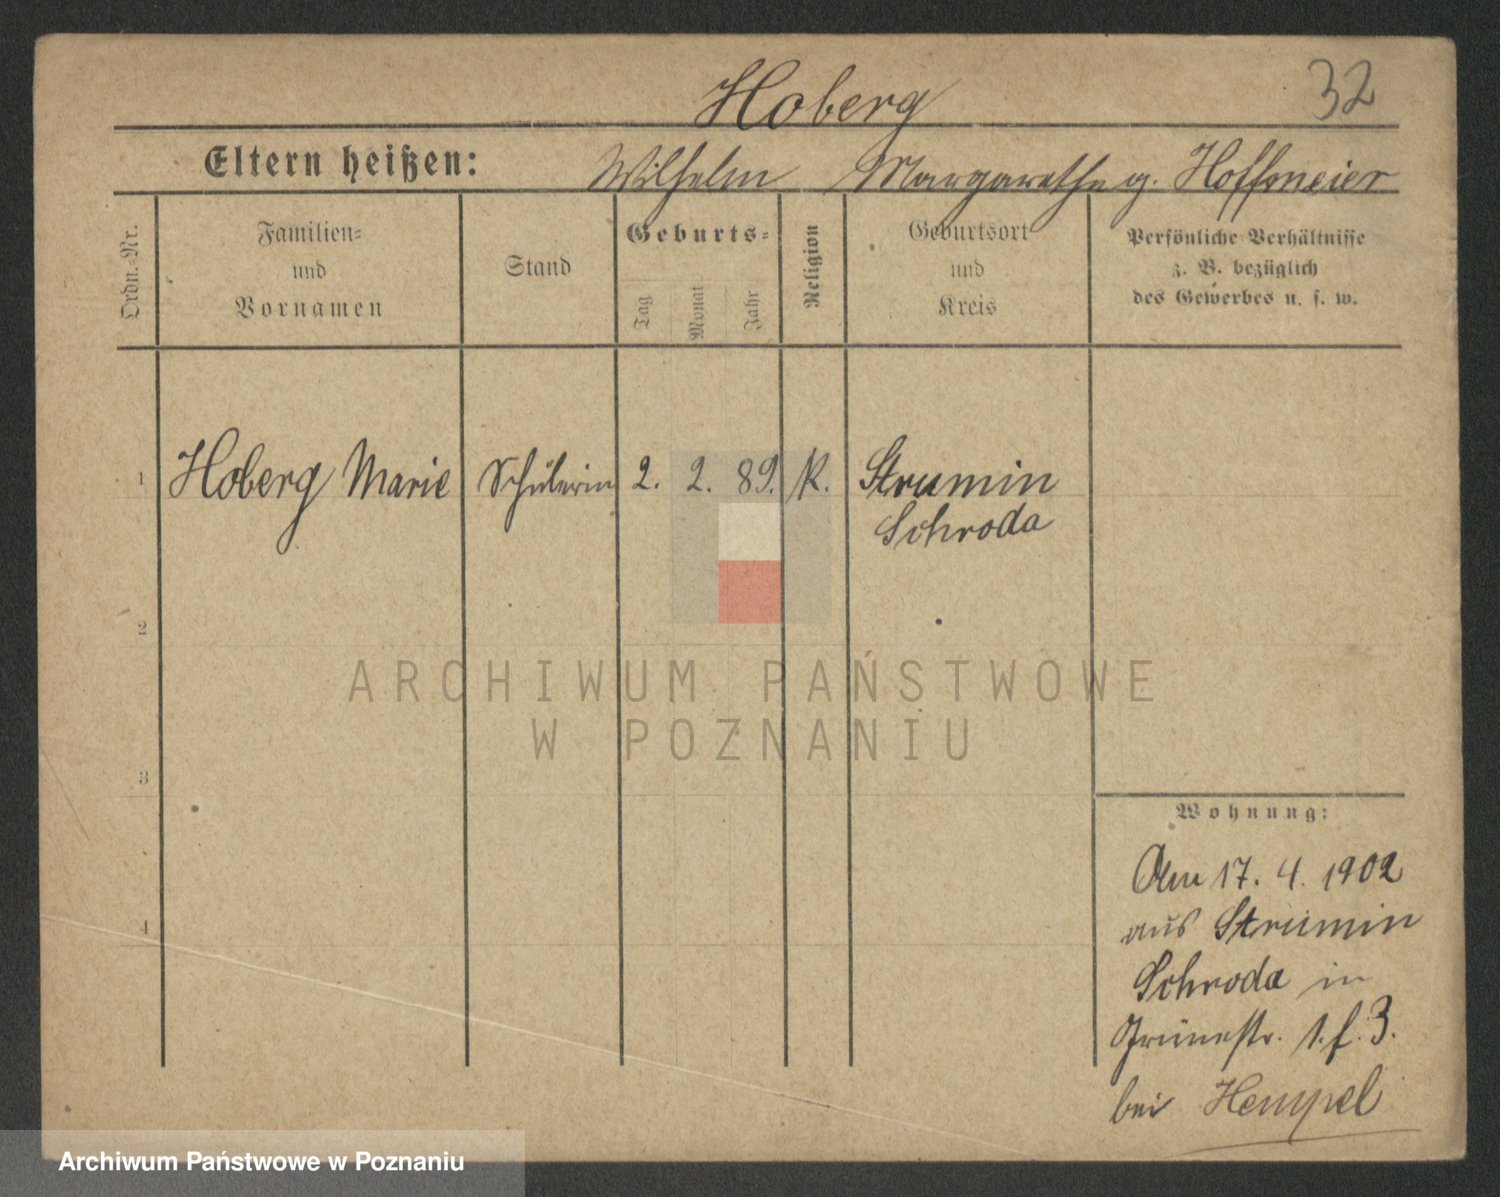 32
Hoberg
Eltern heißen: Wilhelm Margarethe g. Hoffmeier
Ordn.-Nr.
Familien-
und
Vornamen
Stand
Geburts-
Tag
Monat
Jahr
Religion
Geburtsort
und
Kreis
Persönliche Verhältnisse
z. B. bezüglich
des Gewerbes u. s. w.
1 Hoberg Marie Schülerin 2. 2. 89. K. Strumin
Schroda
2
3
4
Wohnung:
Am 17. 4. 1902
aus Strumin
Schroda in
Grünestr. 1. f. 3.
bei Hempel
ARCHIWUM PAŃSTWOWE
W POZNANIU
Archiwum Państwowe w Poznaniu